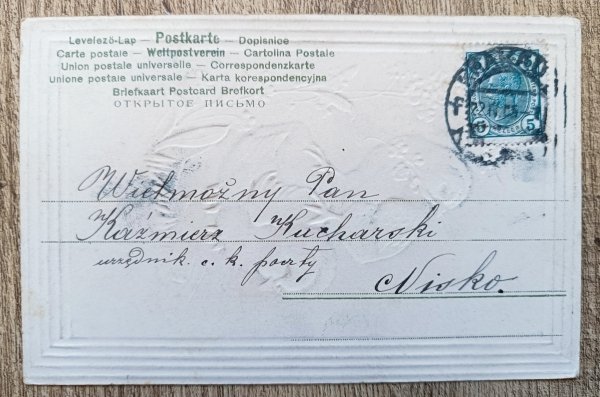 Levelező-Lap — Postkarte — Dopisnice
Carte postale — Weltpostverein — Cartolina Postale
Union postale universelle — Correspondenzkarte
Unione postale universale — Karta korespondencyjna
Briefkaart Postcard Brefkort
ОТКРЫТОЕ ПИСЬМО
5 5
Wielmożny Pan
Kaźmierz Kucharski
urzędnik c. k. poczty
Nisko.